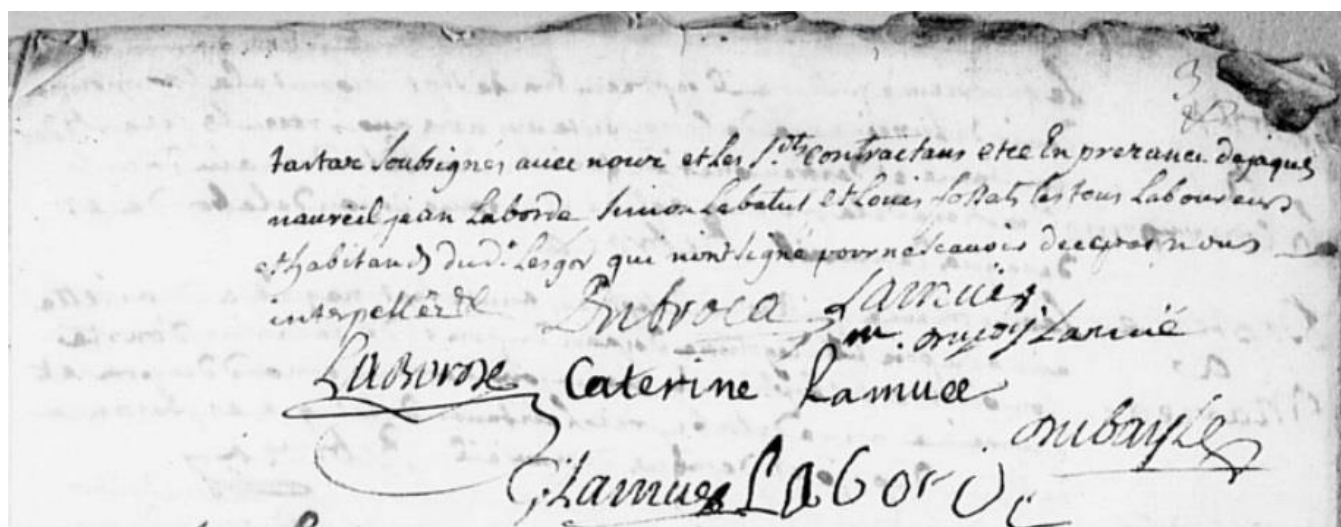 tartar Soubsignés avec nous et les s.dts Contractans et ce En presance de jaques
naureil jean Laborde Simon Labatut et Louis Lostat tous Laboureurs
et habitans du d. Lesgor qui n'ont signé pour ne scavoir de ce par nous
interpellés
Dubroca Lamuer
m. Lamué
Laborde Caterine Lamuee
dubayle
Lamuer Laborde